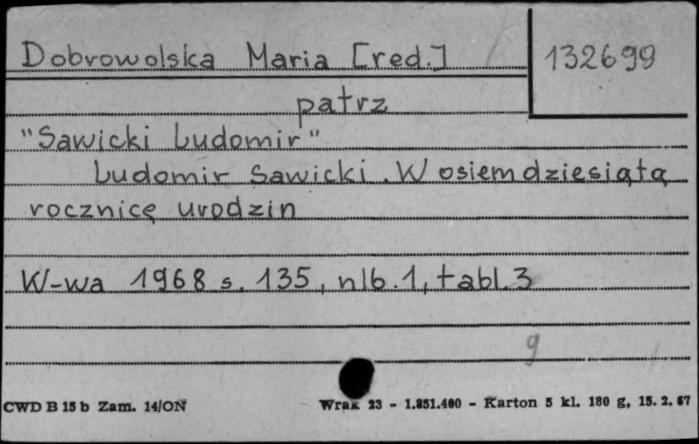 Dobrowolska Maria [red.] 132699
patrz
"Sawicki Ludomir"
Ludomir Sawicki. W osiemdziesiątą
rocznicę urodzin
W-wa 1968 s. 135, nlb. 1, tabl. 3
g
CWD B 15 b Zam. 14/ON Wrak 23 - 1.851.400 - Karton 5 kl. 180 g, 15. 2. 67